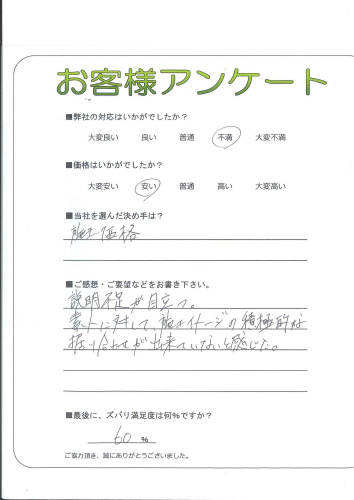 お客様アンケート
■弊社の対応はいかがでしたか?
大変良い 良い 普通 不満 大変不満
■価格はいかがでしたか?
大変安い 安い 普通 高い 大変高い
■当社を選んだ決め手は?
施工価格
■ご感想・ご要望などをお書き下さい。
説明不足が目立つ。
素人に対して、施工イメージの積極的な
摺り合わせが出来ていないと感じた。
■最後に、ズバリ満足度は何%ですか?
60 %
ご協力頂き、誠にありがとうございました。